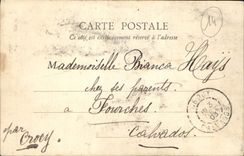 14
CARTE POSTALE
Ce côté est exclusivement réservé à l'adresse
Mademoiselle Bianca Heeys
chez ses parents
à Fourches
par Crocy) Calvados